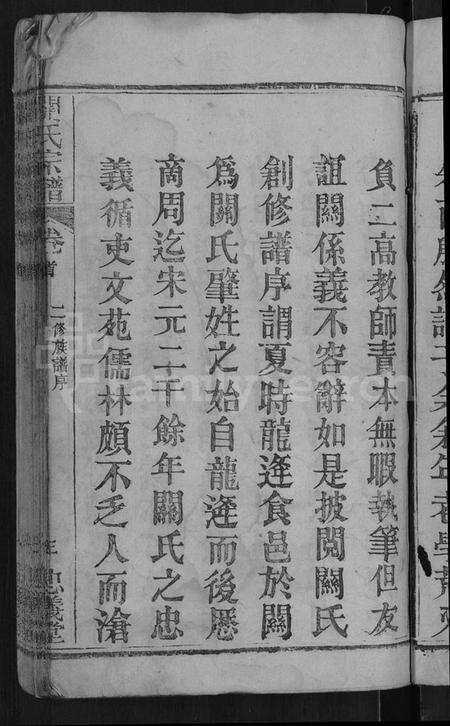 負二高教師責本無暇執筆但友
誼關係義不容辭如是披閱關氏
創修譜序謂夏時龍逄食邑於關
為關氏肇姓之始自龍逄而後歷
商周迄宋元二千餘年關氏之忠
義循吏文苑儒林頗不乏人而滄
關氏宗譜
卷首
二修族譜序
忠義堂